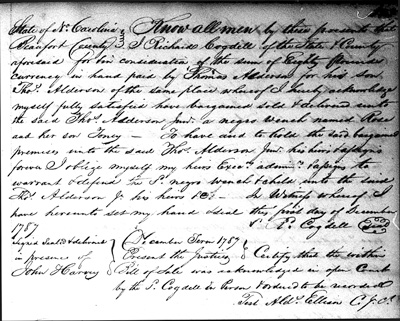 State of No. Carolina } Know all men by these presents that
Beaufort County } I Richard Cogdell of the State & County
aforesaid for & in consideration of the sum of Eighty Pounds
currency in hand paid by Thomas Alderson for his son
Thos. Alderson of the same place whereof I hereby acknowledge
myself fully satisfied have bargained sold & delivered unto
the said Thos. Alderson Junr. a negro wench named Rose
and her son Toney — To have and to hold the said bargained
premises unto the said Thos. Alderson Junr. his heirs & assigns
forever I oblige myself my heirs Execs. admrs. & assigns to
warrant & defend the Sd. negro wench & child unto the said
Thos. Alderson Jr. his heirs &c — In Witness whereof I
have hereunto set my hand & seal this first day of December
1787 Rd. Cogdell Seal
Signed Seal'd & delivered } December Term 1787
in presence of } Present the Justices } Certify that the within
John Harvey } Bill of Sale was acknowledged in open Court
by the Sd. Cogdell in Person & ordered to be recorded
Test Aldn. Ellison C.J.C.